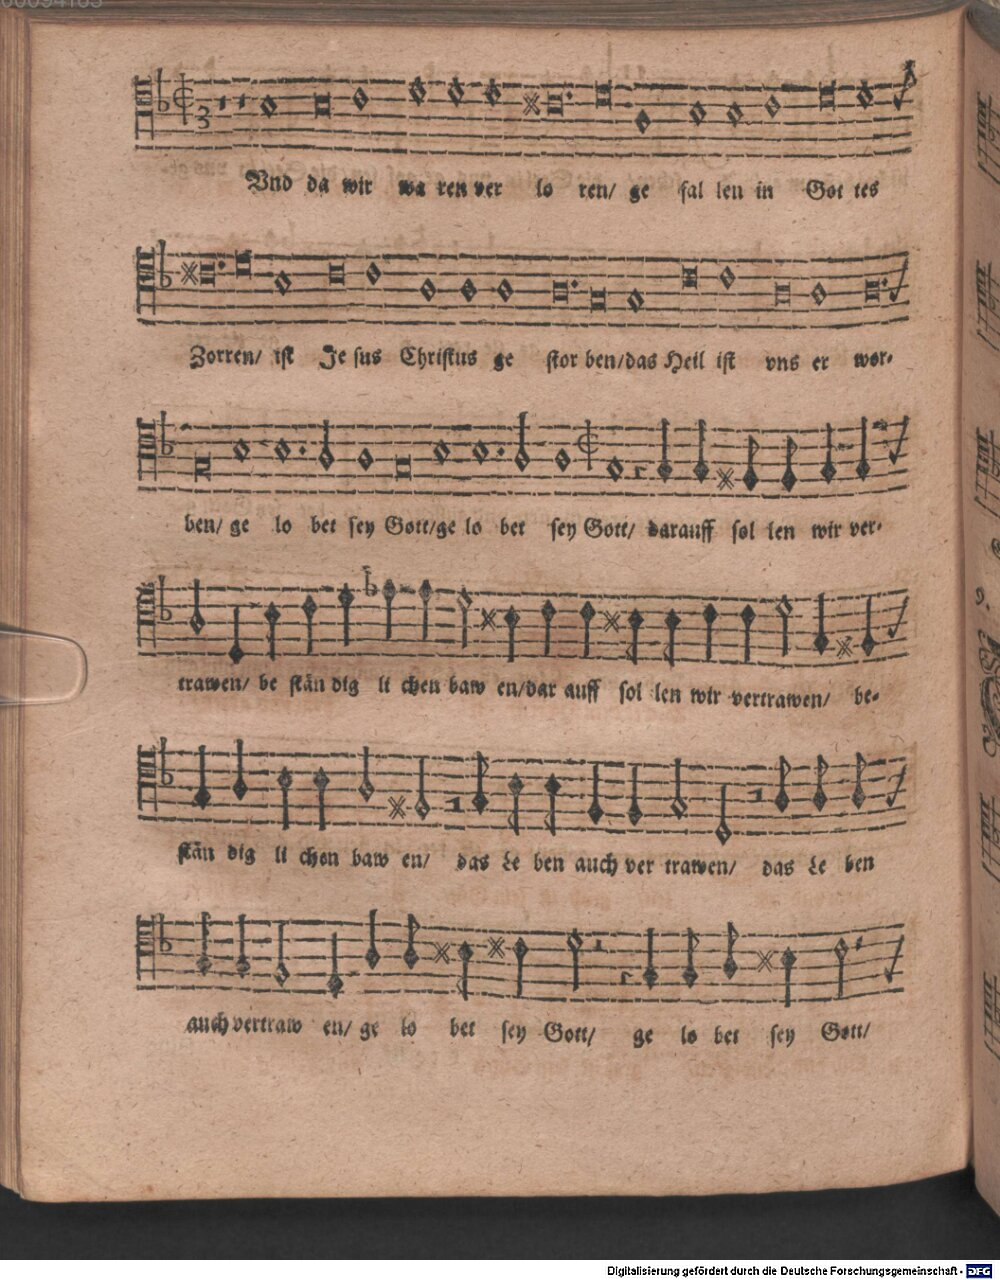 Vnd da wir wa ren ver lo ren/ ge fal len in Got tes
Zorren/ ist Je sus Christus ge stor ben/das Heil ist vns er wor-
ben/ ge lo bet sey Gott/ge lo bet sey Gott/ darauff sol len wir ver-
trawen/ be stän dig li chen baw en/dar auff sol len wir vertrawen/ be-
stän dig li chen baw en/ das Le ben auch ver trawen/ das Le ben
auch vertraw en/ ge lo bet sey Gott/ ge lo bet sey Gott/
Digitalisierung gefördert durch die Deutsche Forschungsgemeinschaft - DFG